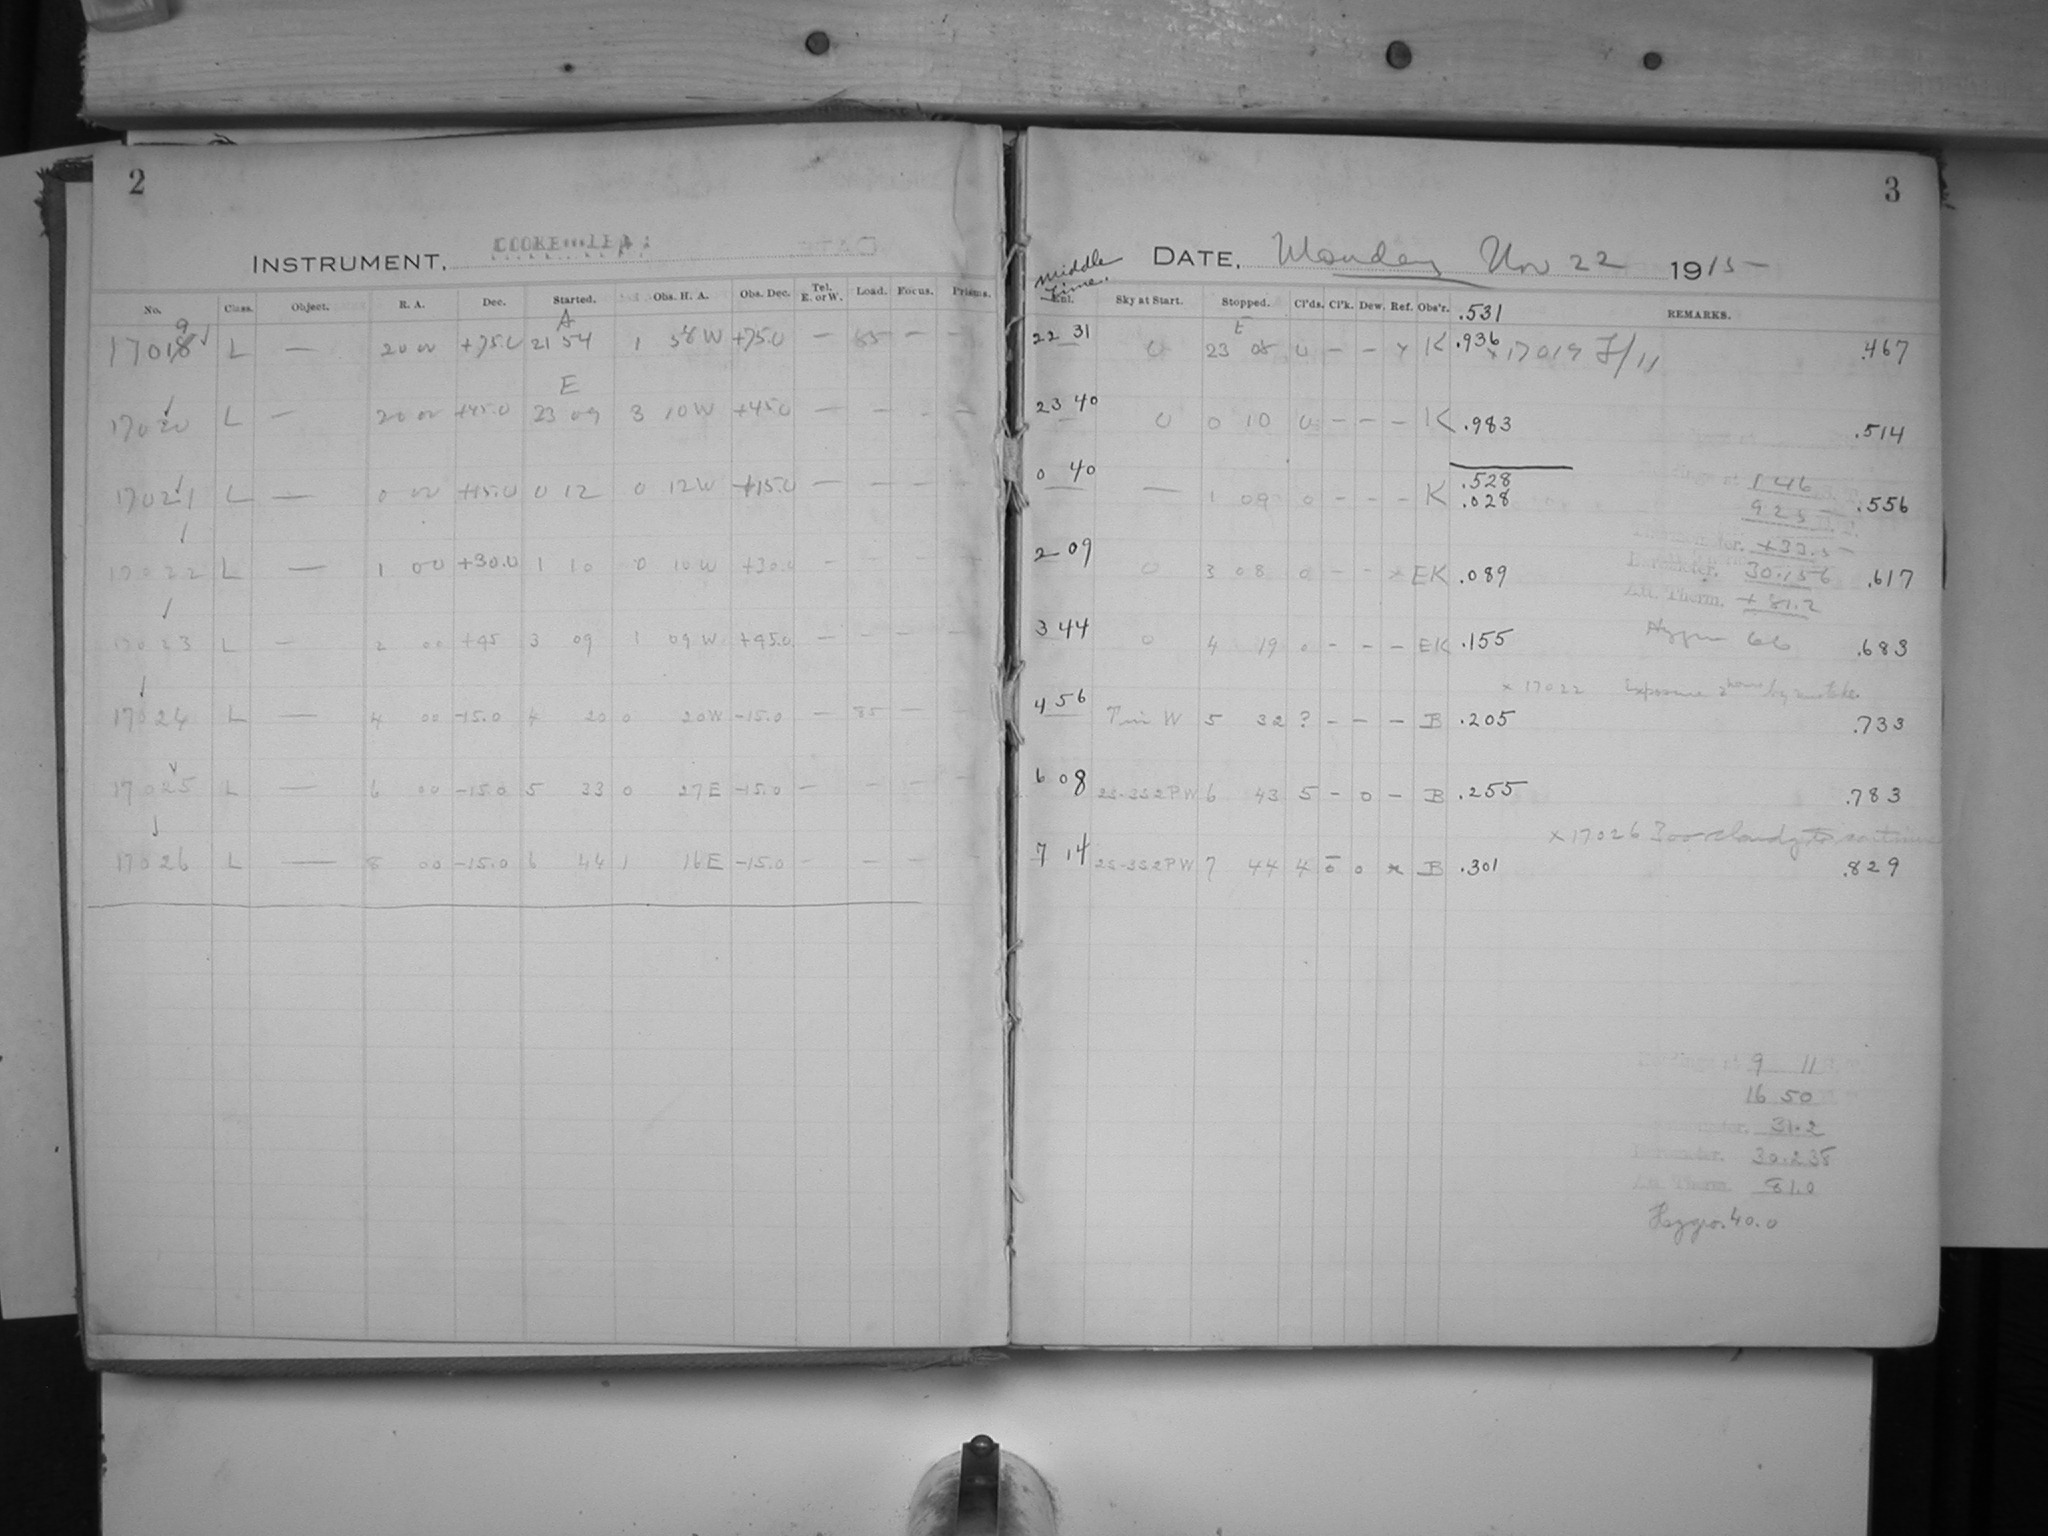 2
INSTRUMENT, COOKE
No. Class. Object. R. A. Dec. Started. Obs. H. A. Obs. Dec. Tel. E. or W. Load. Focus. Prisms.
A
17018 9 L — 20 00 +75.0 21 54 1 54 W +75.0 — 85 — —
E
17020 L — 20 00 +45.0 23 09 3 10 W +45.0 — — - —
17021 L — 0 00 +15.0 0 12 0 12 W +15.0 — — — —
17022 L — 1 00 +30.0 1 10 0 10 W +30.0 -
17023 L — 2 00 +45 3 09 1 09 W +45.0 — — — —
17024 L — 4 00 -15.0 4 20 0 20 W -15.0 — 85 — —
17025 L — 6 00 -15.0 5 33 0 27 E -15.0 —
17026 L — 8 00 -15.0 6 44 1 16 E -15.0 - - — —
3
DATE, Monday Nov 22 1915
Middle Time.
Enl. Sky at Start. Stopped. Cl'ds. Cl'k. Dew. Ref. Obs'r. .531 REMARKS.
E
22 31 0 23 08 0 — — x K .936 x 17019 J/11 .467
23 40 0 0 10 0 — — — K .983 .514
0 40 — 1 09 0 - - - K .528
.028 .556
1 46
9 25
Thermometer. +33.5
2 09 0 3 08 0 - - x EK .089 30.156 .617
Att. Therm. +81.2
3 44 0 4 19 0 - - - EK .155 Hygro 66 .683
x 17022 Exposure 2 hours by mistake.
4 56 Tui W 5 32 ? - - - B .205 .733
6 08 2S-3S2PW 6 43 5 - 0 - B .255 .783
x 17026 Too cloudy to continue
7 14 2S-3S2PW 7 44 4 0 0 x B .301 .829
9 11
16 50
31.2
30.238
Att. Therm. 81.0
Hygro. 40.0